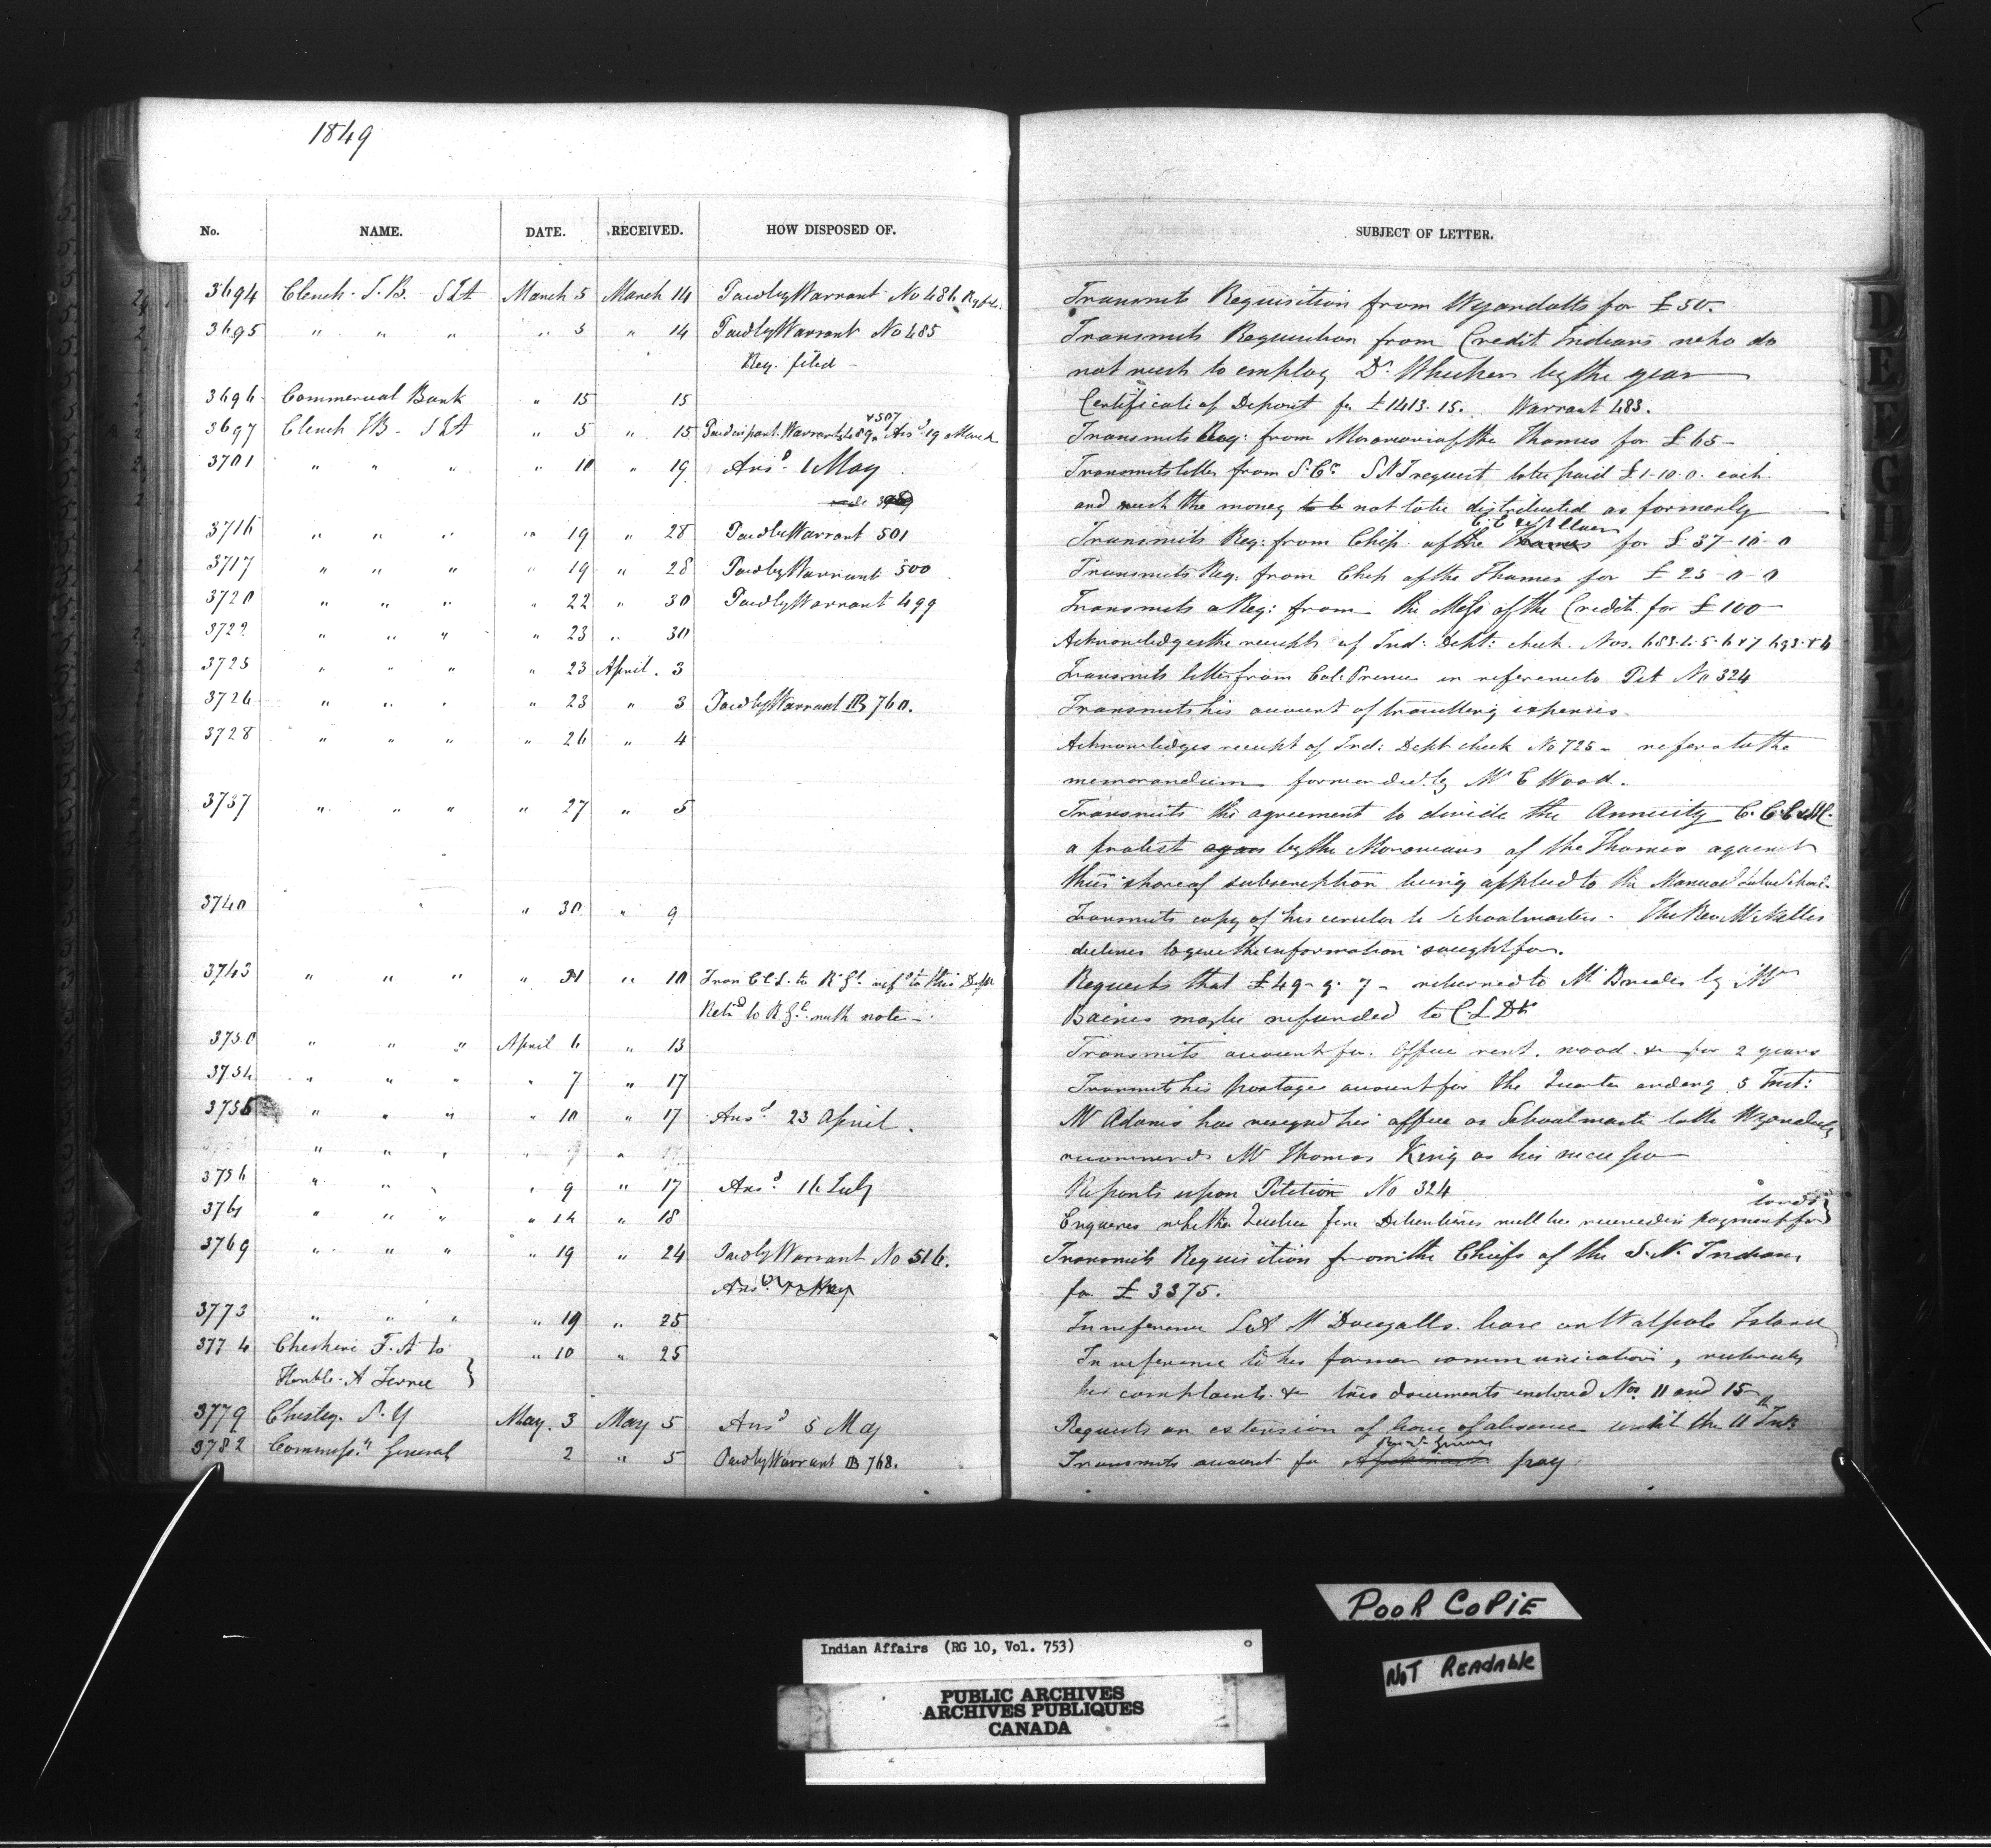 1849
No. NAME. DATE. RECEIVED. HOW DISPOSED OF. SUBJECT OF LETTER.
3694 Clench J.B. SIA March 5 March 14 Paid by Warrant No 486 Transmits Requisition from Wyandotts for £50.
3695 " " " " 5 " 14 Paid by Warrant No 485 Transmits Requisition from Credit Indians who do
Req. filed - not wish to employ Dr. by the year
3696 Commercial Bank " 15 15 Certificate of Deposit for £1413.15. Warrant 483.
3697 Clench JB - SIA " 5 " 15 Paid in part Warrants 489 & 507 Ansd 19 March Transmits Req: from Moravians of the Thames for £65 -
3701 " " " " 10 " 19 Ansd. 1 May Transmits letter from S. Cr. SN I request to be paid £1-10-0. each.
and wish the money to be not to be distributed as formerly
3716 " " " " 19 " 28 Paid by Warrant 501 Transmits Req: from Chip. of the Thames for £37-10-0
3717 " " " " 19 " 28 Paid by Warrant 500 Transmits Req. from Chip of the Thames for £25-0-0
3720 " " " " 22 " 30 Paid by Warrant 499 Transmits a Req: from the Mess of the Credit for £100 -
3722 " " " " 23 " 30 Acknowledges the receipt of Ind: Dept: check. Nos. 683.4.5.6 & 7 693 & 4
3725 " " " " 23 April 3 Transmits letter from Col: Prince in reference to Pet No 324
3726 " " " " 23 " 3 Paid by Warrant B 760. Transmits his account of travelling expenses.
3728 " " " " 26 " 4 Acknowledges receipt of Ind: Dept check No 725 - refers to the
memorandum forwarded by Mr C Wood.
3737 " " " " 27 " 5 Transmits the agreement to divide the Annuity C.C.
a protest by the Moravians of the Thames against
their share of subscription being applied to the Manual Labor School.
3740 " 30 " 9 Transmits copy of his circular to Schoolmasters. The Rev Mr Nelles
declines to give the information sought for.
3743 " " " " 31 " 10 Tran C C L. to R. Gl. refd to this Dept Requests that £49-9-7 - returned to Mr by Mr
Retd to R Gl. with note - Baines may be refunded to C.L Dt
3750 " " " April 6 " 13 Transmits account for Office rent. wood. &c for 2 years
3754 " " " " 7 " 17 Transmits his postage account for the Quarter ending 5 Inst:
3755 " " " " 10 " 17 Ansd. 23 April. Mr Adams has resigned his office as Schoolmaster to the Wyandotts
" " " recommends Mr Thomas King as his successor
3756 " " " " 9 " 17 Ansd 16 July Reports upon Petition No 324
3761 " " " " 14 " 18 Enquires whether Debentures will be received in payment for lands
3769 " " " " 19 " 24 Paid by Warrant No 516. Transmits Requisition from the Chiefs of the S.N. Indians
Ansd May for £3375.
3773 " " " " 19 " 25 In reference McDougalls lease on Walpole Island
3774 Cheshire F.A to " 10 " 25 In reference to his former communications, reiterates
Honble A Ferrie } his complaints &c two documents enclosed Nos 11 and 15
3779 Chesley S.Y May 3 May 5 Ansd 5 May Requests an extension of leave of absence until the 11th Inst.
3782 Commissy General 2 " 5 Paid by Warrant B 768. Transmits account for pay
D
E
F
G
H
I
K
L
POOR COPIE
Indian Affairs (RG 10, Vol. 753)
NOT READABLE
PUBLIC ARCHIVES
ARCHIVES PUBLIQUES
CANADA